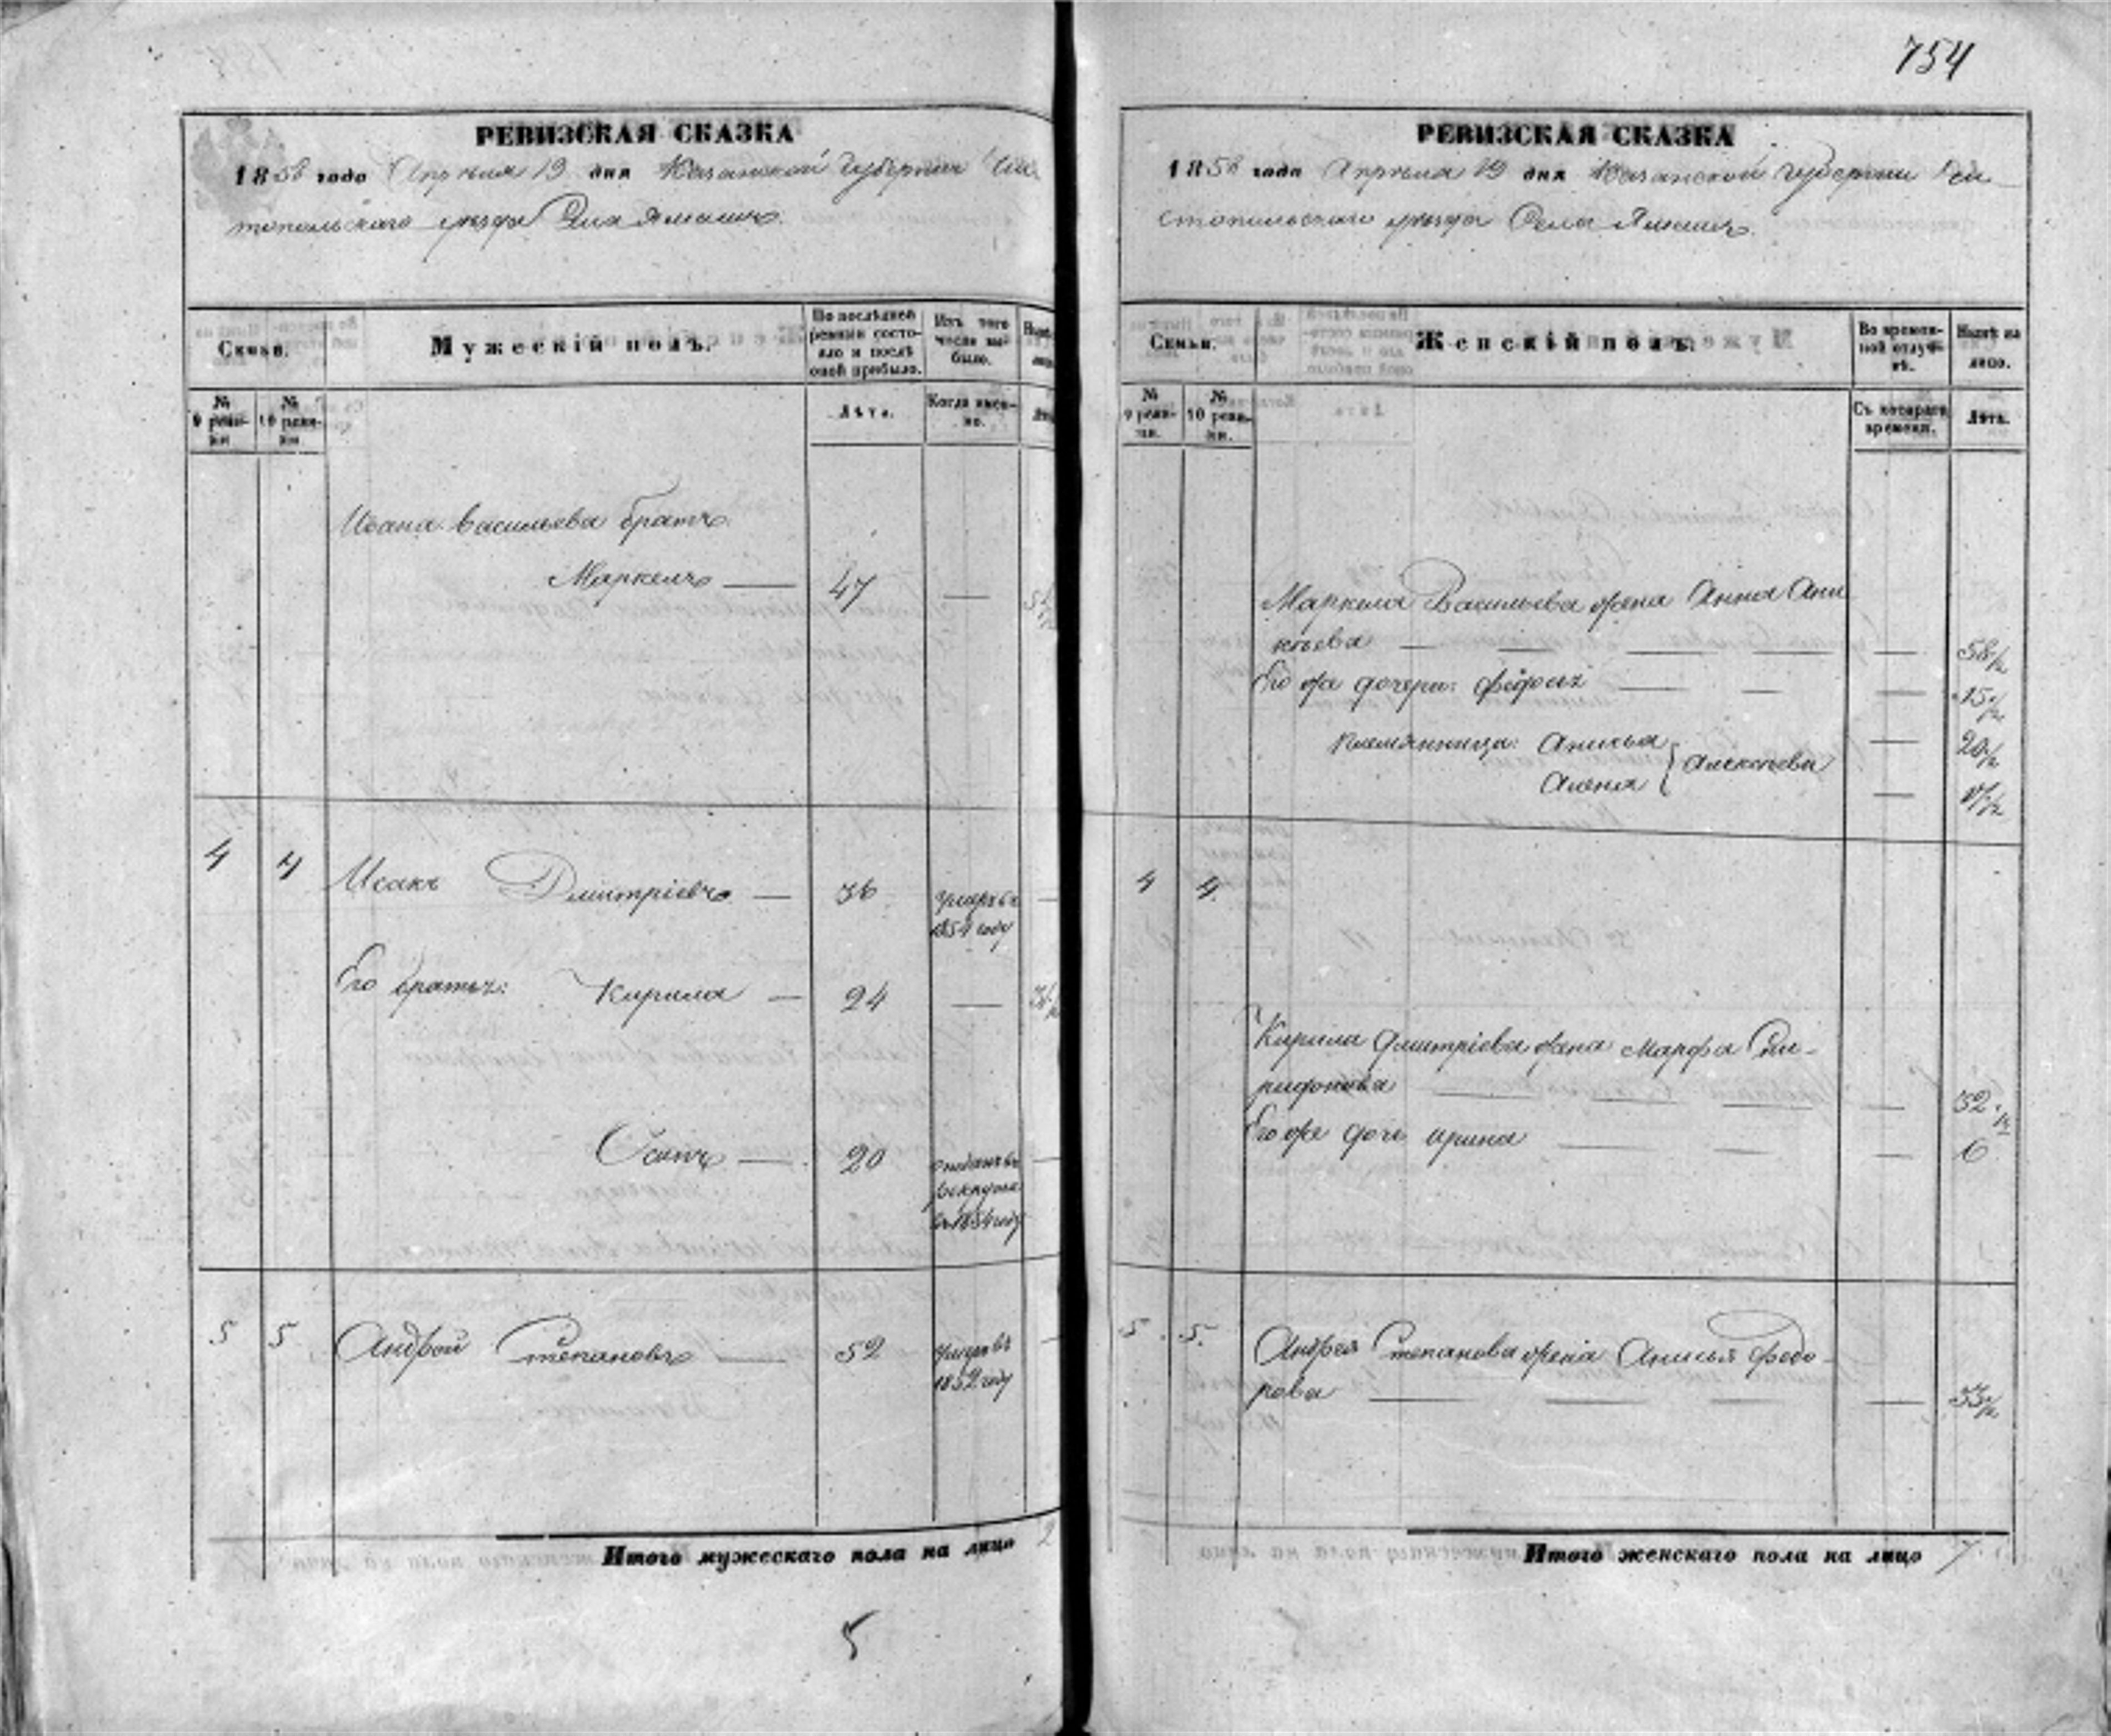 754
РЕВИЗСКАЯ СКАЗКА
1858 года Апреля 19 дня Казанской Губернии Чи-
стопольскаго уезда Села Ямашъ
Семьи.
Мужескій полъ.
По последней ревизіи состояло и после оной прибыло.
Изъ того числа выбыло.
№ 9 ревизіи
№ 10 ревизіи
Лета.
Когда именно.
Ивана Васильева братъ
Маркелъ — 47 —
4 4 Исакъ Дмитріевъ — 36 умеръ въ
1854 году
Его братья: Кирила — 24 —
Осипъ — 20 отданъ въ
рекруты
въ 1854 году
5 5 Андрей Степановъ — 52 умеръ въ
1852 году
Итого мужескаго пола на лицо 2
5
РЕВИЗСКАЯ СКАЗКА
1858 года Апреля 19 дня Казанской Губерніи Чи-
стопольскаго уезда Села Ямашъ
Семьи.
Женскій полъ.
Во временной отлучкѣ.
Нынѣ на лицо.
№ 9 ревизіи.
№ 10 ревизіи.
Съ котораго времени.
Лѣта.
Маркела Васильева жена Анна Ани-
кѣева — —
Его же дочери: — — 15 1/2
племянницы: Анисья } Алексѣевы — 20 1/2
Алена —
4 4
Кирила Дмитріева жена Марфа
— — 32 1/2
Его же дочь Ирина — — 6
5 5 Андрея Степанова жена Анисья Федо-
рова — —
Итого женскаго пола на лицо 7